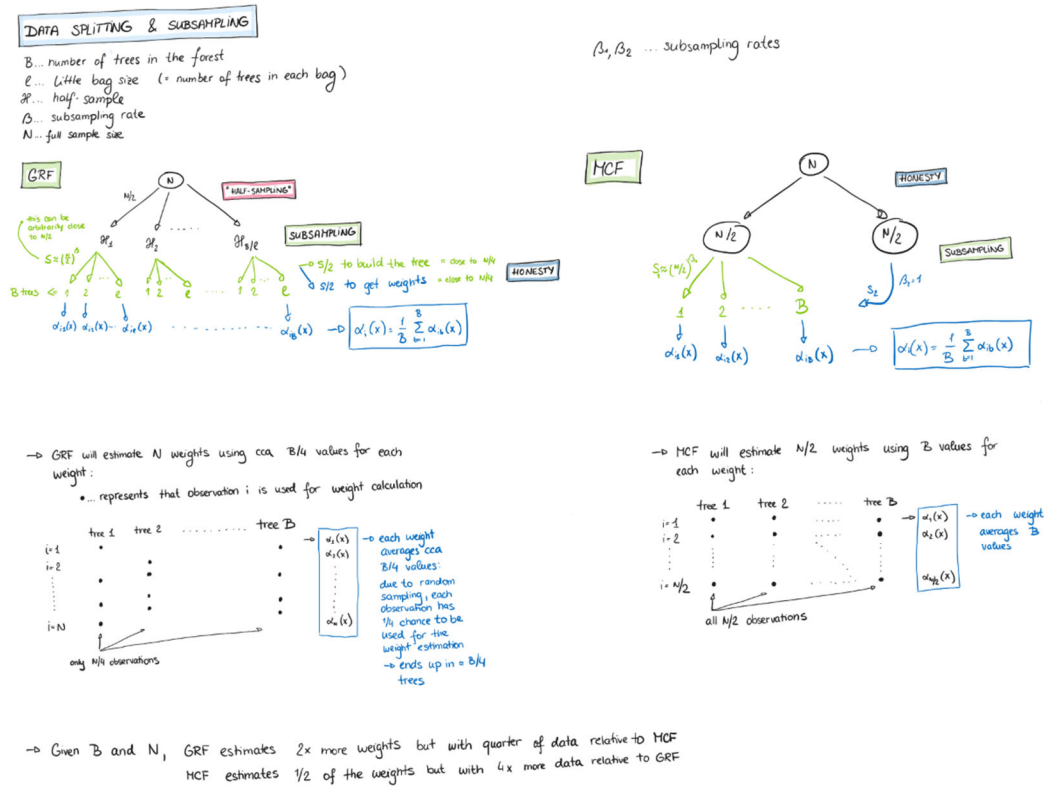 DATA SPLITTING & SUBSAMPLING
B... number of trees in the forest
ℓ... little bag size (= number of trees in each bag)
ℋ... half-sample
β... subsampling rate
N... full sample size
β₁, β₂ ... subsampling rates
GRF
N
N/2
"HALF-SAMPLING"
this can be
arbitrarily close
to N/2
ℋ₁ ℋ₂ ...... ℋB/ℓ
SUBSAMPLING
1 2 ℓ 1 2 ℓ ..... 1 2 ℓ
B trees
S/2 to build the tree = close to N/4
S/2 to get weights = close to N/4
HONESTY
αi(x) = 1/B Σ b=1 B αib(x)
MCF
N
HONESTY
N/2 N/2
SUBSAMPLING
S₂ β₂=1
1 2 ..... B
αi1(x) αi2(x) αiB(x)
αi(x) = 1/B Σ b=1 B αib(x)
→ GRF will estimate N weights using cca B/4 values for each
weight:
•... represents that observation i is used for weight calculation
tree 1 tree 2 .......... tree B
i=1
i=2
i=N
only N/4 observations
→ each weight
averages cca
B/4 values:
due to random
sampling, each
observation has
1/4 chance to be
used for the
weight estimation
→ ends up in = B/4
trees
→ MCF will estimate N/2 weights using B values for
each weight:
tree 1 tree 2 ..... tree B
i=1
i=2
i=N/2
α₁(x)
α₂(x)
αN/2(x)
→ each weight
averages B
values
all N/2 observations
→ Given B and N, GRF estimates 2x more weights but with quarter of data relative to MCF
MCF estimates 1/2 of the weights but with 4x more data relative to GRF